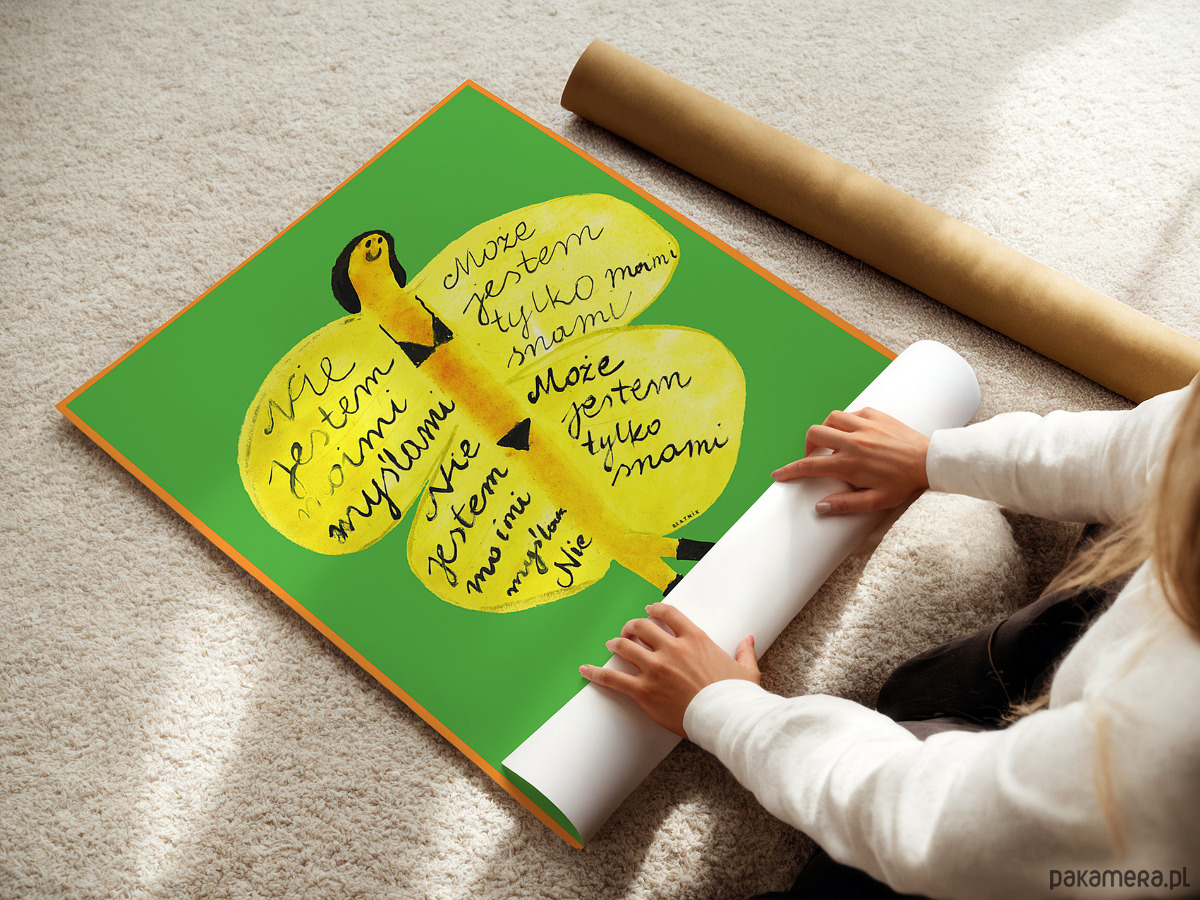 Nie
jestem
moimi
myślami
Nie
jestem
moimi
myślami
Nie
Może
jestem
tylko moimi
snami
Może
jestem
tylko
snami
BEATNIK
pakamera.pl